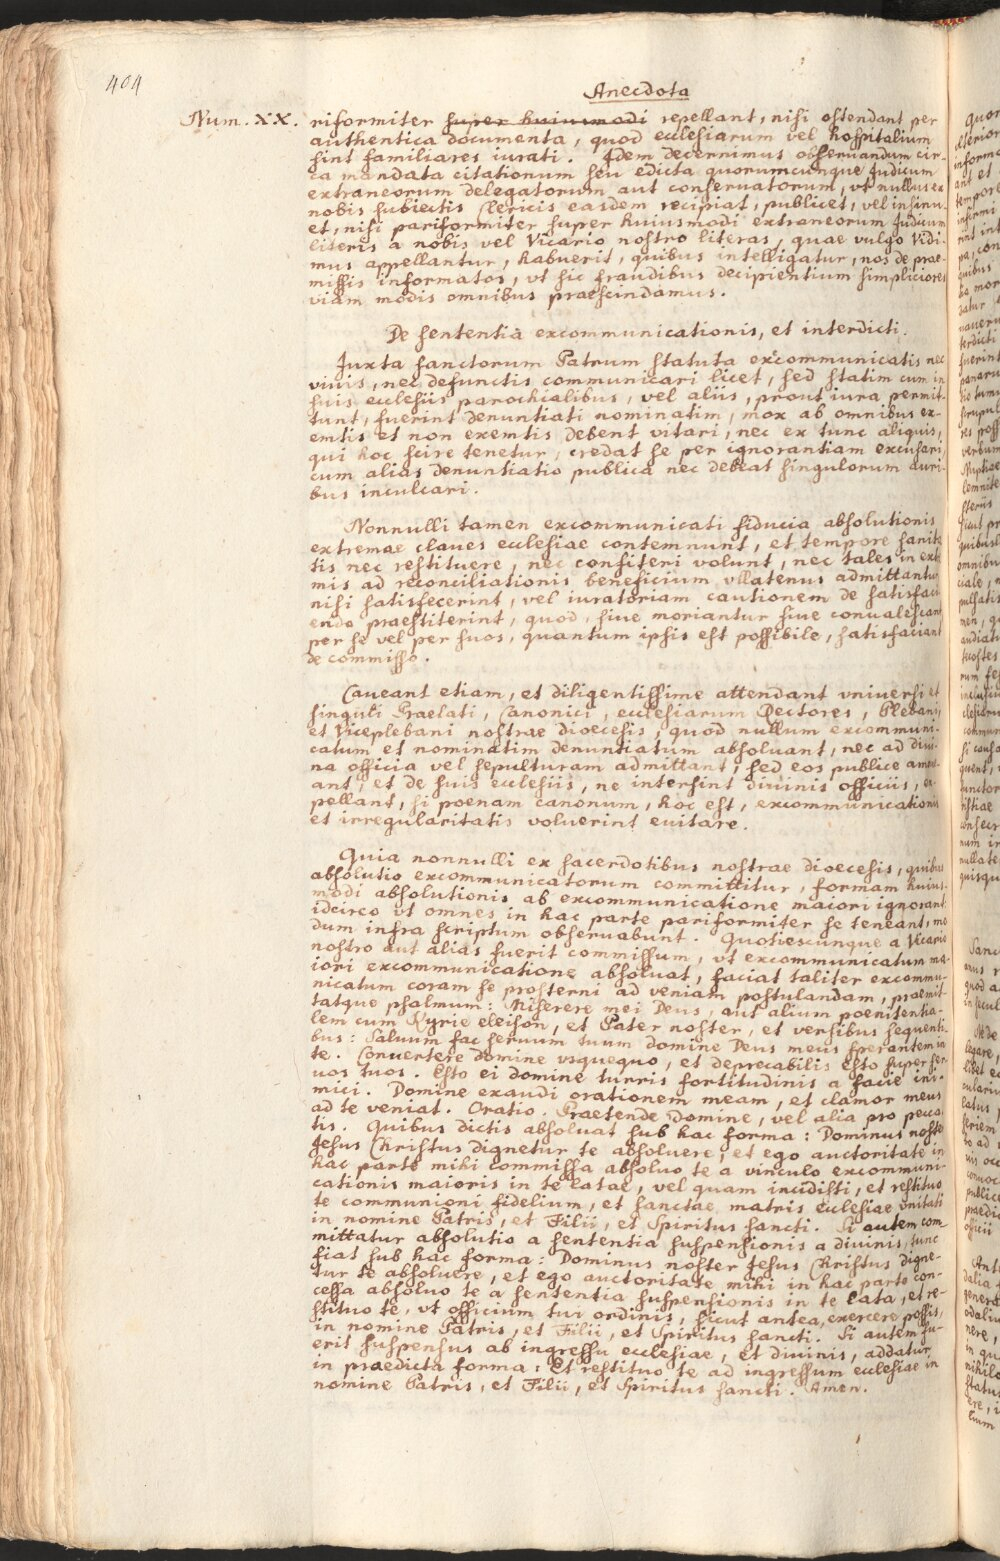 404
Anecdota
Num. XX. riformiter super huiusmodi repellant, nisi ostendant per
authentica documenta, quod ecclesiarum vel hospitalium
sint familiares iurati. Idem decernimus obseruandum cir-
ca mandata citationum seu edicta quorumcunque Judicum
extraneorum delegatorum aut conseruatorum, vt nullus ex
nobis subiectis Clericis easdem recipiat, publicet, vel insinu-
et, nisi pariformiter super huiusmodi extraneorum Judicum
literis a nobis vel Vicario nostro literas, quae vulgo Vidi-
mus appellantur, habuerit, quibus intelligatur, nos de prae-
missis informatos, vt sic fraudibus decipientium simpliciores
viam modis omnibus praescindamus.
De sententia excommunicationis, et interdicti.
Juxta sanctorum Patrum statuta excommunicatis nec
viuis, nec defunctis communicari licet, sed statim cum in
suis ecclesiis parochialibus, vel aliis, prout iura permit-
tunt, fuerint denuntiati nominatim, mox ab omnibus ex-
emtis et non exemtis debent vitari, nec ex tunc aliquis,
qui hoc scire tenetur, credat se per ignorantiam excusari,
cum alias denuntiatio publica nec debeat singulorum auri-
bus inculcari.
Nonnulli tamen excommunicati fiducia absolutionis
extremae claues ecclesiae contemnunt, et tempore sanita
tis nec restituere, nec confiteri volunt, nec tales in extre
mis ad reconciliationis beneficium vllatenus admittantur
nisi satisfecerint, vel iuratoriam cautionem de satisfaci
endo praestiterint, quod, siue moriantur siue conualescant
per se vel per suos, quantum ipsis est possibile, satisfaciant
de commisso.
Caueant etiam, et diligentissime attendant vniuersi et
singuli Praelati, Canonici, ecclesiarum Rectores, Plebani,
et Viceplebani nostrae dioecesis, quod nullum excommuni-
catum et nominatim denuntiatum absoluant, nec ad diui-
na officia vel sepulturam admittant, sed eos publice amoue
ant, et de suis ecclesiis, ne intersint diuinis officiis, ex-
pellant, si poenam canonum, hoc est, excommunicationis
et irregularitatis voluerint euitare.
Quia nonnulli ex sacerdotibus nostrae dioecesis, quibus
absolutio excommunicatorum committitur, formam huius-
modi absolutionis ab excommunicatione maiori ignorant:
idcirco vt omnes in hac parte pariformiter se teneant, mo
dum infra scriptum obseruabunt. Quotiescunque a Vicario
nostro aut alias fuerit commissum, vt excommunicatum ma-
iori excommunicatione absoluat, faciat taliter excommu-
nicatum coram se prosterni ad veniam postulandam, praemit-
tatque psalmum: Miserere mei Deus, aut alium poenitentia-
lem cum Kyrie eleison, et Pater noster, et versibus sequenti-
bus: Saluum fac seruum tuum domine Deus meus sperantem in
te. Conuertere domine vsquequo, et deprecabilis Esto super ser-
uos tuos. Esto ei domine turris fortitudinis a facie ini-
mici. Domine exaudi orationem meam, et clamor meus
ad te veniat. Oratio. Praetende Domine, vel alia pro pecca
tis. Quibus dictis absoluat sub hac forma: Dominus noster
Jesus Christus dignetur te absoluere, et ego auctoritate in
hac parte mihi commissa absoluo te a vinculo excommuni-
cationis maioris in te latae, vel quam incidisti, et restituo
te communioni fidelium, et sanctae matris ecclesiae vnitati
in nomine Patris, et Filii, et Spiritus sancti. Si autem com-
mittatur absolutio a sententia suspensionis a diuinis, tunc
fiat sub hac forma: Dominus noster Jesus Christus digne-
tur te absoluere, et ego auctoritate mihi in hac parte con-
cessa absoluo te a sententia suspensionis in te lata, et re-
stituo te, vt officium tui ordinis, sicut antea, exercere possis,
in nomine Patris, et Filii, et Spiritus sancti. Si autem fu-
erit suspensus ab ingressu ecclesiae, et diuinis, addatur
in praedicta forma: Et restituo te ad ingressum ecclesiae in
nomine Patris, et Filii, et Spiritus sancti. Amen.